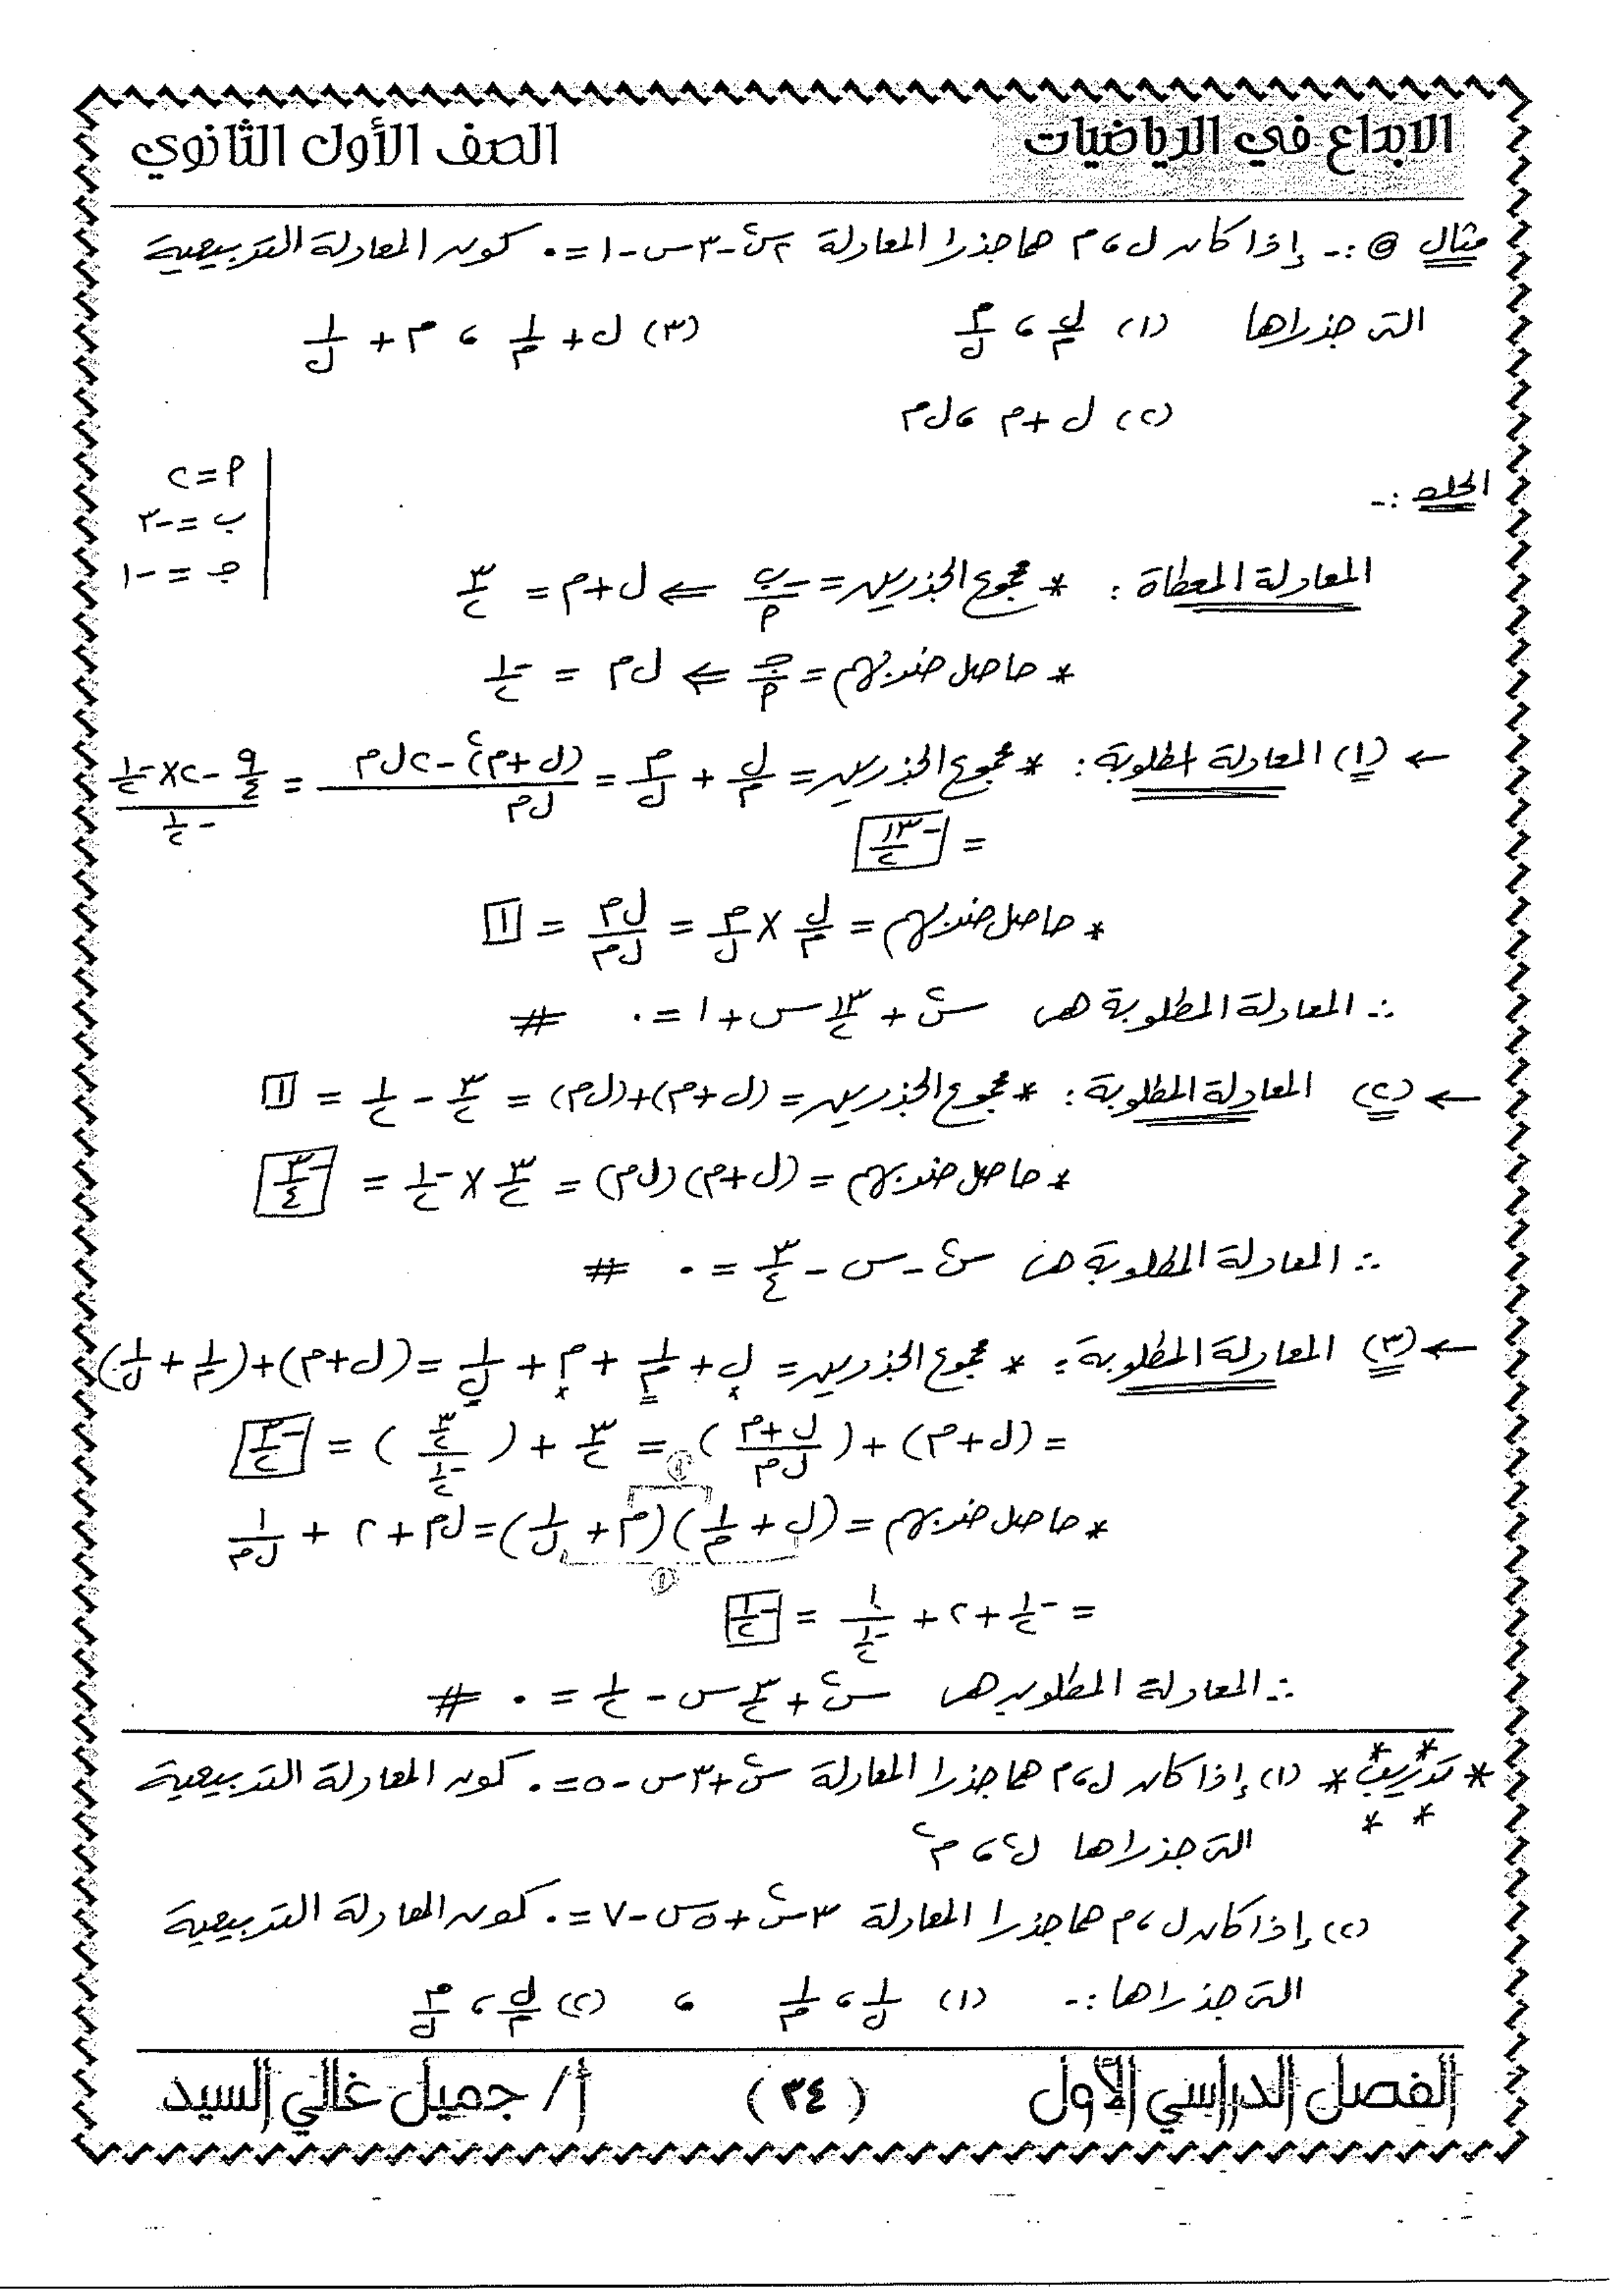 الابداع في الرياضيات
الصف الأول الثانوي
مثال ⑤ :- إذا كان ل ، م هما جذرا المعادلة ٢س٢ - ٣س - ١ = ٠ كون المعادلة التربيعية
التي جذراها (١) ل/م ، م/ل (٣) ل + ١/م ، م + ١/ل
(٢) ل + م ، ل م
الحل :-
أ = ٢
ب = -٣
جـ = -١
المعادلة المعطاة : * مجموع الجذرين = -ب/أ ⇐ ل + م = ٣/٢
* حاصل ضربهم = جـ/أ ⇐ ل م = -١/٢
← (١) المعادلة المطلوبة : * مجموع الجذرين = ل/م + م/ل = ((ل + م)٢ - ٢ ل م)/(ل م) = (٩/٤ - ٢ × -١/٢)/(-١/٢)
= -١٣/٢
* حاصل ضربهم = ل/م × م/ل = ل م/ل م = ١
∴ المعادلة المطلوبة هي س٢ + ١٣/٢ س + ١ = ٠ #
← (٢) المعادلة المطلوبة : * مجموع الجذرين = (ل + م) + (ل م) = ٣/٢ - ١/٢ = ١
* حاصل ضربهم = (ل + م) (ل م) = ٣/٢ × -١/٢ = -٣/٤
∴ المعادلة المطلوبة هي س٢ - س - ٣/٤ = ٠ #
← (٣) المعادلة المطلوبة : * مجموع الجذرين = ل + ١/م + م + ١/ل = (ل + م) + (١/م + ١/ل)
= (ل + م) + ((ل + م)/(ل م)) = ٣/٢ + ((٣/٢)/(-١/٢)) = -٣/٢
* حاصل ضربهم = (ل + ١/م) (م + ١/ل) = ل م + ٢ + ١/(ل م)
= -١/٢ + ٢ + ١/(-١/٢) = -١/٢
∴ المعادلة المطلوبه هي س٢ + ٣/٢ س - ١/٢ = ٠ #
* تدريب * (١) إذا كان ل ، م هما جذرا المعادلة س٢ + ٣س - ٥ = ٠ كون المعادلة التربيعية
التي جذراها ل٢ ، م٢
(٢) إذا كان ل ، م هما جذرا المعادلة ٣س٢ + ٥س - ٧ = ٠ كون المعادلة التربيعية
التي جذراها :- (١) ١/ل ، ١/م ، (٢) ل/م ، م/ل
الفصل الدراسي الأول
( ٣٤ )
أ/ جميل غالي السيد